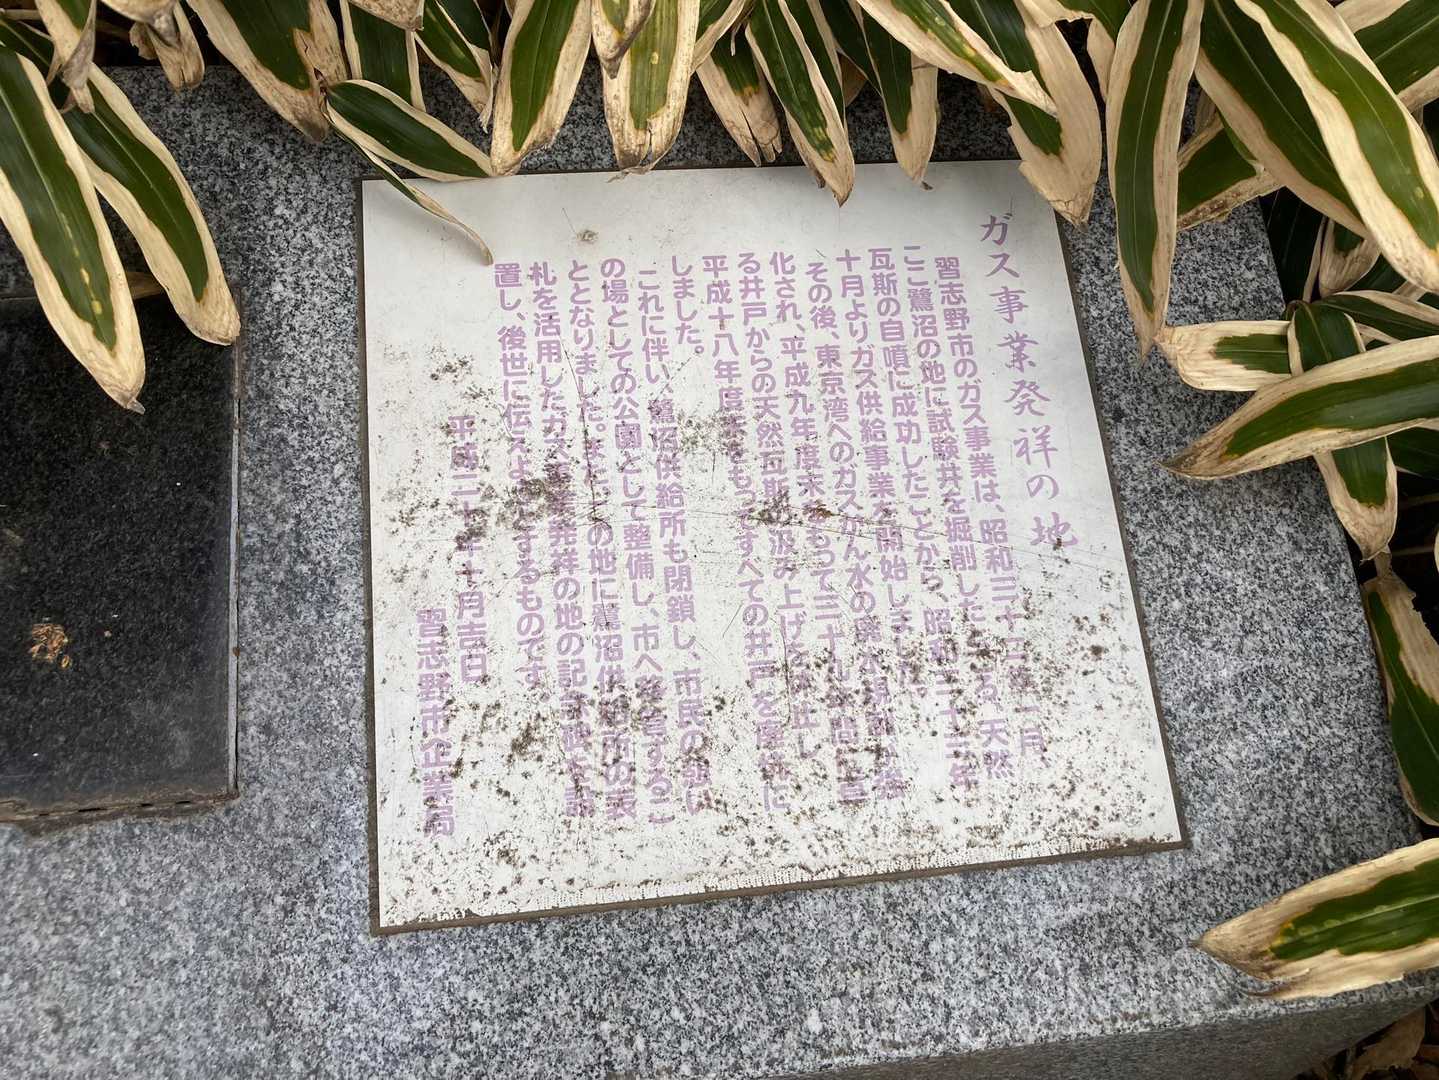 ガス事業発祥の地
習志野市のガス事業は、昭和三十 年一月、
ここ鷺沼の地に試験井を掘削したところ、天然
瓦斯の自噴に成功したことから、昭和三十三年
十月よりガス供給事業を開始しました。
その後、東京湾へのガスかん水の
化され、平成九年度末をもって 汲み上げを休止し
る井戸からの天然瓦斯の
平成十八年度末をもってすべての井戸を
しました。
これに伴い、鷺沼供給所も閉鎖し、市民の憩い
の場としての公園として整備し、市へ移管するこ
ととなりました。また、この地に鷺沼供給所の表
札を活用したガス事業発祥の地の記念碑を設
置し、後世に伝えようとするものです。
平成二十 年十月吉日
習志野市企業局